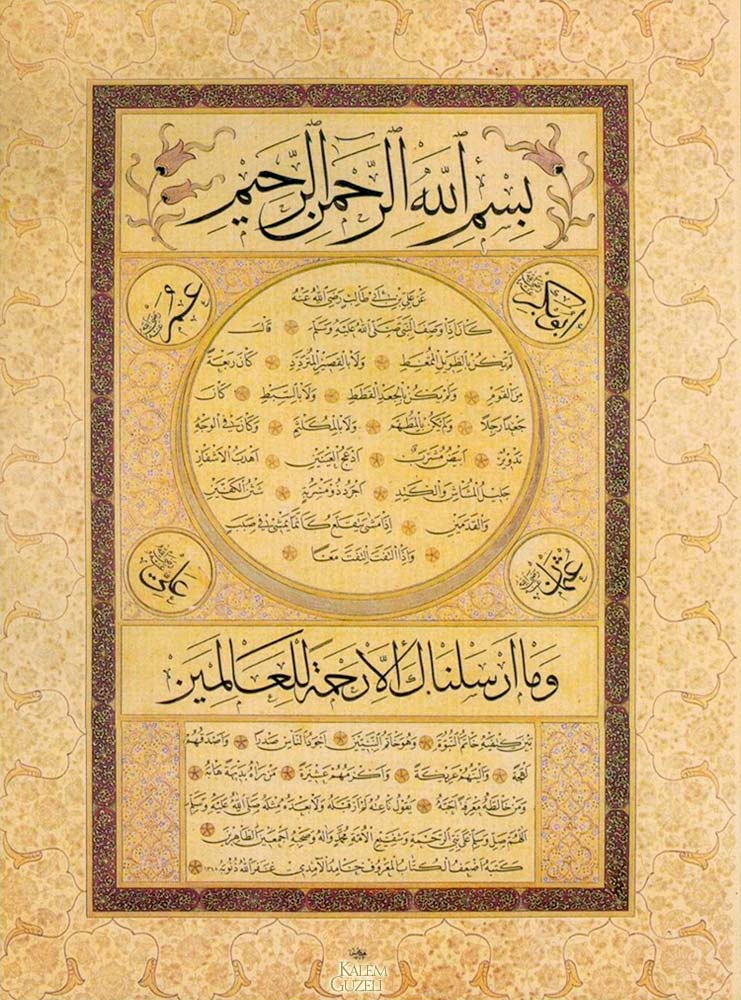 بِسْمِ اللهِ الرَّحْمٰنِ الرَّحِيمِ
ابوبكر رضى الله عنه
عمر رضى الله عنه
عَنْ عَلِيِّ بْنِ اَبِي طَالِبٍ رَضِيَ اللهُ عَنْهُ
كَانَ اِذَا وَصَفَ النَّبِيَّ صَلَّى اللهُ عَلَيْهِ وَسَلَّمَ قَالَ
لَمْ يَكُنْ بِالطَّوِيلِ الْمُمَّغِطِ وَلَا بِالْقَصِيرِ الْمُتَرَدِّدِ كَانَ رَبْعَةً
مِنَ الْقَوْمِ وَلَمْ يَكُنْ بِالْجَعْدِ الْقَطَطِ وَلَا بِالسَّبِطِ كَانَ
جَعْدًا رَجِلًا وَلَمْ يَكُنْ بِالْمُطَهَّمِ وَلَا بِالْمُكَلْثَمِ وَكَانَ فِي الْوَجْهِ
تَدْوِيرٌ اَبْيَضُ مُشْرَبٌ اَدْعَجُ الْعَيْنَيْنِ اَهْدَبُ الْاَشْفَارِ
جَلِيلُ الْمُشَاشِ وَالْكَتَدِ اَجْرَدُ ذُو مَسْرُبَةٍ شَثْنُ الْكَفَّيْنِ
وَالْقَدَمَيْنِ اِذَا مَشَى يَتَقَلَّعُ كَاَنَّمَا يَمْشِي فِي صَبَبٍ
وَاِذَا الْتَفَتَ الْتَفَتَ مَعًا
عثمان رضى الله عنه
على رضى الله عنه
وَمَا اَرْسَلْنَاكَ اِلَّا رَحْمَةً لِلْعَالَمِينَ
بَيْنَ كَتِفَيْهِ خَاتَمُ النُّبُوَّةِ وَهُوَ خَاتَمُ النَّبِيِّينَ اَجْوَدُ النَّاسِ صَدْرًا وَاَصْدَقُهُمْ
لَهْجَةً وَاَلْيَنُهُمْ عَرِيكَةً وَاَكْرَمُهُمْ عَشِيرَةً مَنْ رَاٰهُ بَدِيهَةً هَابَهُ
وَمَنْ خَالَطَهُ مَعْرِفَةً اَحَبَّهُ يَقُولُ نَاعِتُهُ لَمْ اَرَ قَبْلَهُ وَلَا بَعْدَهُ مِثْلَهُ صَلَّى اللهُ عَلَيْهِ وَسَلَّمَ
اَللّٰهُمَّ صَلِّ وَسَلِّمْ عَلَى نَبِيِّ الرَّحْمَةِ وَشَفِيعِ الْاُمَّةِ مُحَمَّدٍ وَاٰلِهِ وَصَحْبِهِ اَجْمَعِينَ الطَّاهِرِينَ
كَتَبَهُ اَضْعَفُ الْكُتَّابِ الْمَعْرُوفُ حَامِدُ الْاٰمِدِي غَفَرَ اللهُ ذُنُوبَهُ
KALEM
GÜZELİ